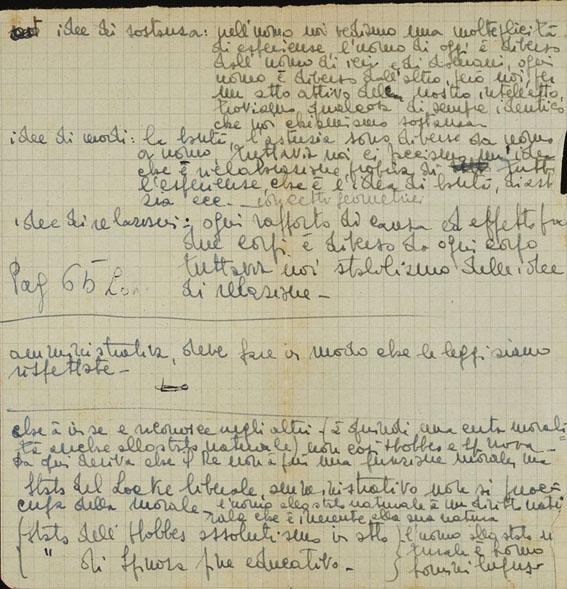 idee di sostanza: nell'uomo noi vediamo una molteplicità
di esperienze, l'uomo di oggi è diverso
dall'uomo di ieri e di domani, ogni
uomo è diverso dall'altro, però noi per
un atto attivo della nostro intelletto,
troviamo qualcosa di sempre identico
che noi chiamiamo sostanza
idee di modi: la bontà, l'astuzia sono diverse da uomo
a uomo, tuttavia noi ci facciamo un'idea
che è rielaborazione, di tutte
l'esperienze, che è l'idea di bontà, di astu
zia ecc. — concetti geometrici
idee di relazioni: ogni rapporto di causa ed effetto fra
due corpi è diverso da ogni corpo
tuttavia noi stabiliamo delle idee
di relazione —
Pag 65
amministrativa, deve fare in modo che le leggi siano
rispettate —
che è in se e riconosce negli altri (è quindi una entità morali
tà anche allo stato naturale) non così Hobbes e Spinoza
Da qui deriva che non à più una funzione morale, ma
Stato del Locke liberale, amministrativo non si preoc
cupa della morale — l'uomo allo stato naturale à un diritto natu
rale che è inerente alla sua natura
(Stato dell'Hobbes assolutismo in atto (l'uomo allo stato n
" di Spinoza fine educativo —
turale è homo
homini lupus)